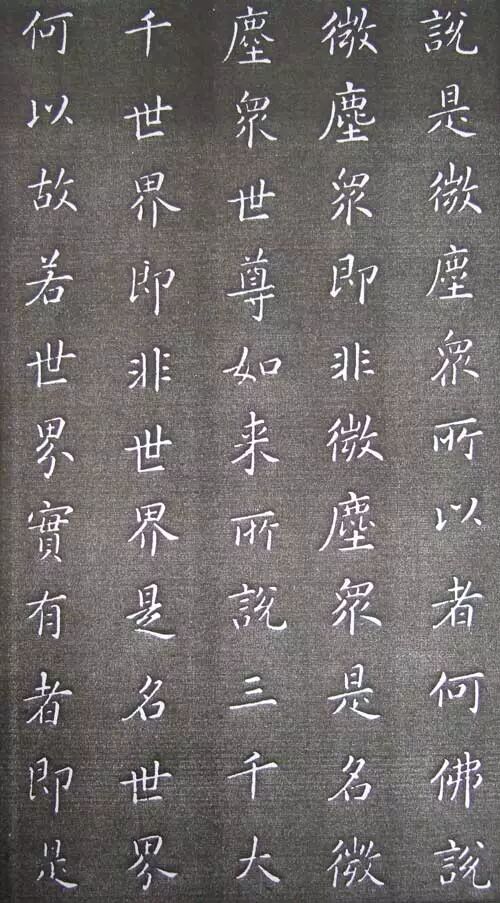 說是微塵眾所以者何佛說
微塵眾即非微塵眾是名微
塵眾世尊如来所說三千大
千世界即非世界是名世界
何以故若世界實有者即是